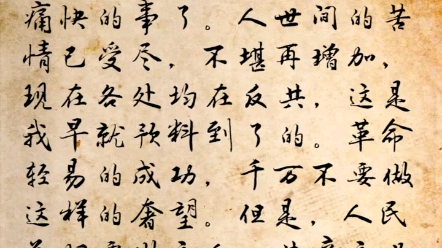 痛快的事了。人世间的苦
情已受尽，不堪再增加，
现在各处均在反共，这是
我早就预料到了的。革命
轻易的成功，千万不要做
这样的奢望。但是，人民